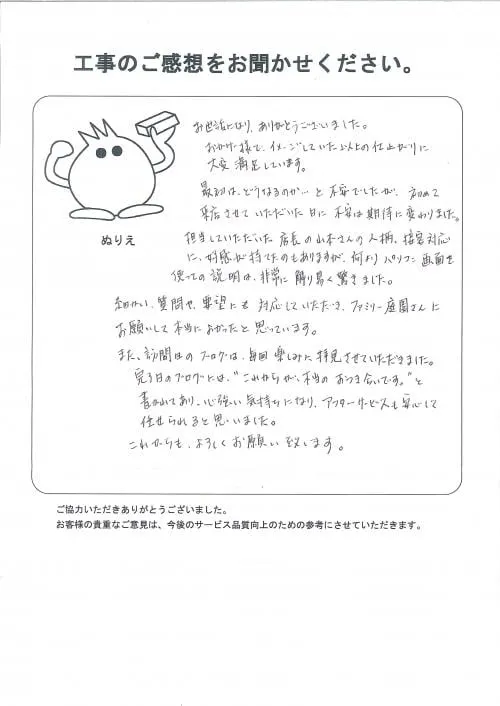 工事のご感想をお聞かせください。
お世話になり、ありがとうございました。
おかげ様で、イメージしていた以上の仕上がりに
大変満足しています。
最初は、どうなるのか…と不安でしたが、初めて
来店させていただいた日に不安は期待に変わりました。
ぬりえ
担当していただいた店長の山本さんの人柄、接客対応
に、好感が持てたのもありますが、何よりパソコン画面を
使っての説明は、非常に解り易く驚きました。
細かい質問や、要望にも対応していただき、ファミリー庭園さんに
お願いして本当によかったと思っています。
また、訪問日のブログは、毎回楽しみに拝見させていただきました。
完了日のブログには、"これからが、本当のおつき合いです。"と
書かれてあり、心強い気持ちになり、アフターサービスも安心して
任せられると思いました。
これからも、よろしくお願い致します。
ご協力いただきありがとうございました。
お客様の貴重なご意見は、今後のサービス品質向上のための参考にさせていただきます。